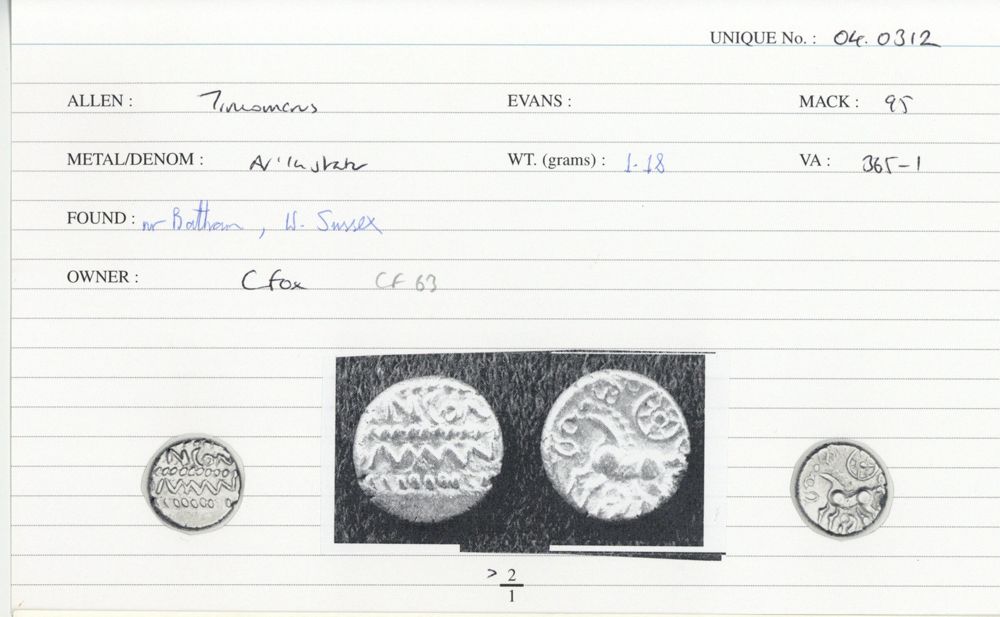 UNIQUE No. : 04.0312
ALLEN : Tincomarus EVANS : MACK : 95
METAL/DENOM : WT. (grams) : 1.18 VA : 365-1
FOUND : nr , W. Sussex
OWNER : C Fox CF 63
> 2
1